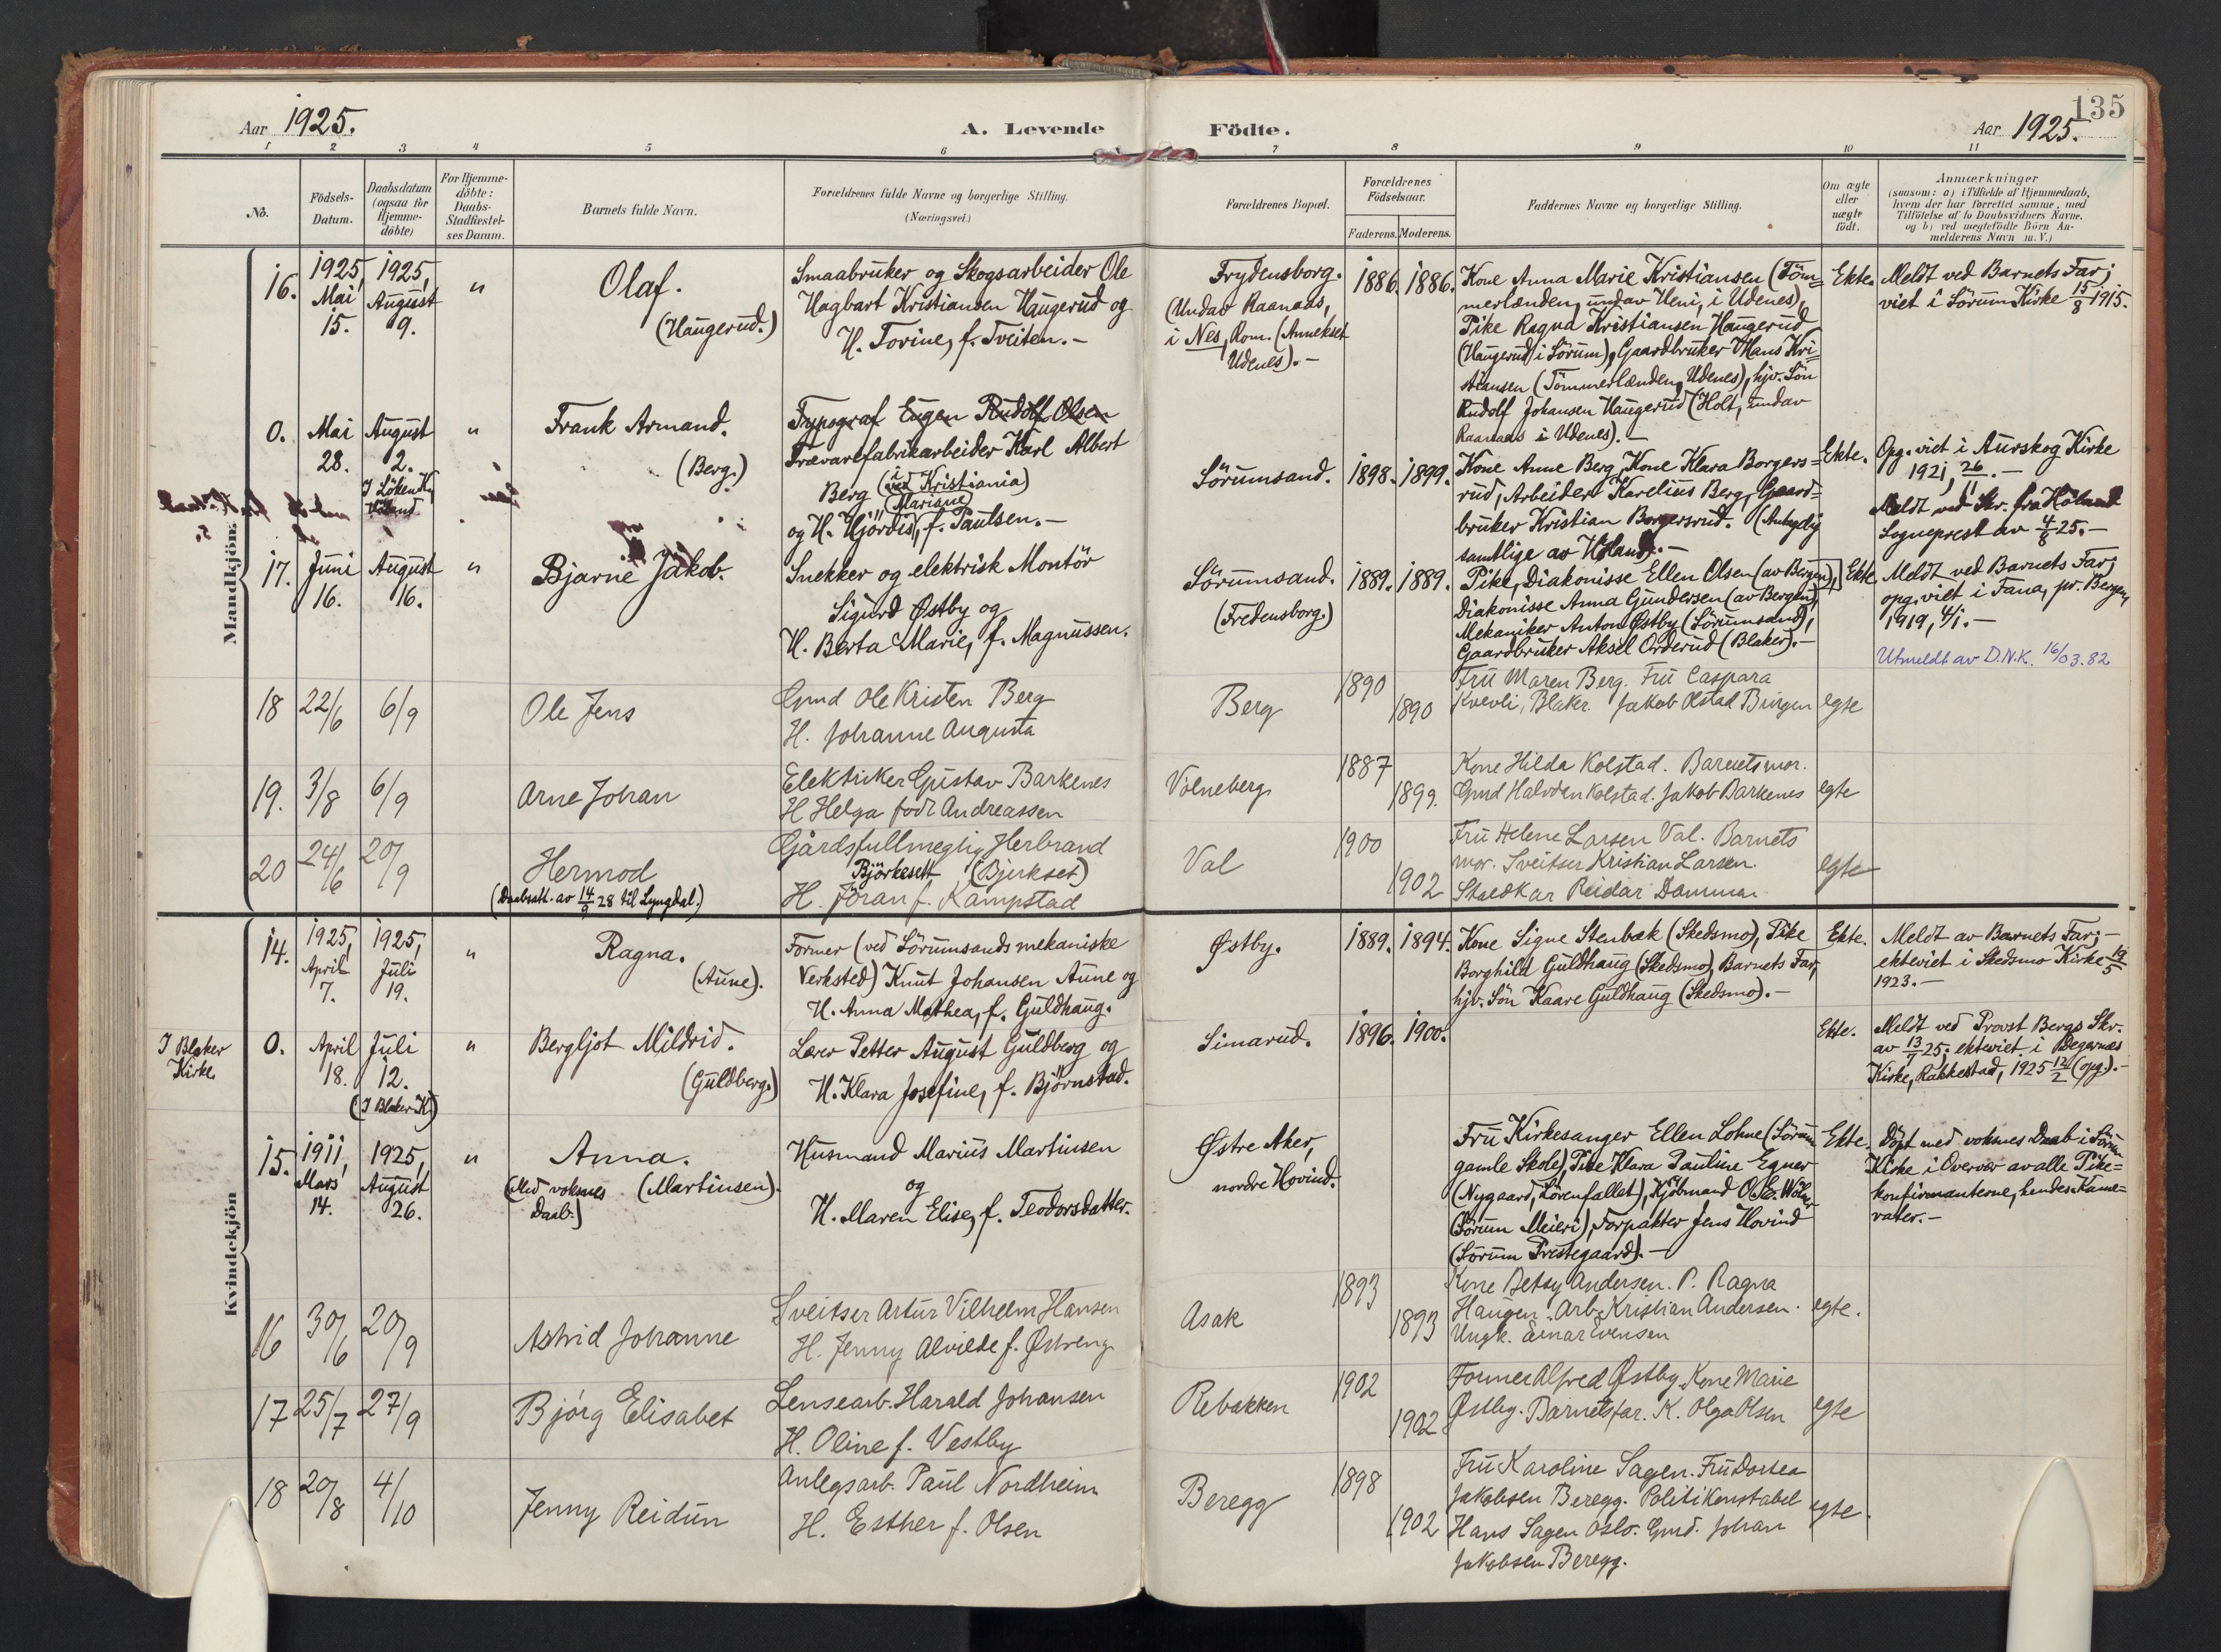 135
Aar 1925.
A. Levende Födte.
Aar 1925.
1 2 3 4 5 6 7 8 9 10 11
No.
Födsels-
Datum.
Daabsdatum
(ogsaa for
Hjemme-
döbte)
For Hjemme-
döbte:
Daabs-
Stadfæstel-
ses Datum.
Barnets fulde Navn.
Forældrenes fulde Navne og borgerlige Stilling.
(Næringsvei.)
Forældrenes Bopæl.
Forældrenes
Födselsaar.
Faderens. Moderens.
Faddernes Navne og borgerlige Stilling.
Om ægte
eller
uægte
födt.
Anmærkninger
(saasom: a) i Tilfælde af Hjemmedaab,
hvem der har forrettet samme, med
Tilföielse af to Daabsvidners Navne,
og b) ved uegtefödte Börn An-
melderens Navn m. V.)
Mandkjön
16.
1925,
Mai
15.
1925,
August
9.
"
Olaf.
(Haugerud.)
Smaabruker og Skogsarbeider Ole
Hagbart Kristiansen Haugerud og
H. Torine, f. Tveiten. -
Frydensborg.
(Undav Raanaas,
i Nes, Rom. (Annekset
Udenes). -
1886. 1886.
Kone Anna Marie Kristiansen (Töm-
merlænden, undav Heni, i Udenes),
Pike Ragna Kristiansen Haugerud
(Haugerud i Sörum), Gaardbruker Hans Kri-
stiansen (Tömmerlænden, Udenes), hjv. Sön
Rudolf Johansen Haugerud (Holt, undav
Raanaas i Udenes). -
Ekte.
Meldt ved Barnets Far;
viet i Sörum Kirke 15/8 1915.
0.
Mai
28.
August
2.
I Löken K.,
Höland.
"
Frank Armand.
(Berg.)
Typograf Eugen Rudolf Olsen
Trævarefabrikarbeider Karl Albert
Berg (i Kristiania)
(Mariane)
og H. Hjördis, f. Paulsen. -
Sörumsand.
1898. 1899.
Kone Anne Berg, Kone Klara Borgers-
rud, Arbeider Karelius Berg, Gaard-
bruker Kristian Borgersrud. (Antydig
samtlige av Höland). -
Ekte.
Opg. viet i Aurskog Kirke
1921, 26/11. -
Meldt ved Skr. fra Höland
Sogneprest av 4/8 25. -
17.
Juni
16.
August
16.
"
Bjarne Jakob.
Snekker og elektrisk Montör
Sigurd Østby og
H. Berta Marie, f. Magnussen.
Sörumsand.
(Fredensborg.)
1889. 1889.
Pike, Diakonisse Ellen Olsen (av Bergen),
Diakonisse Anna Gundersen (av Bergen),
Mekaniker Anton Østby (Sörumsand),
Gaardbruker Aksel Orderud (Blaker). -
Ekte
Meldt ved Barnets Far;
opg. viet i Fana, pr. Bergen,
1919, 4/1. -
Utmeldt av D.N.K. 16/03.82
18
22/6
6/9
Ole Jens
Gmd Ole Kristen Berg
H. Johanne Augusta
Berg
1890
1890
Fru Maren Berg. Fru Caspara
Kvevli, Blaker. Jakob Olstad Bingen
egte
19.
3/8
6/9
Arne Johan
Elektriker Gustav Barkenes
H Helga född Andreassen
Volneberg
1887
1899.
Kone Hilda Kolstad. Barnets mor.
Gmd Halvdan Kolstad. Jakob Barkenes
egte
20
24/6
20/9
Hermod
(Daabsatt. av 14/9 28 til Lyngdal.)
Gjårdsfullmegtig Herbrand
Björkesett (Bjerkset)
H. Jöran f. Kampstad
Val
1900
1902
Fru Helene Larsen Val. Barnets
mor. Sveitser Kristian Larsen.
Staldkar Reidar Dammen
egte
Kvindekjön
14.
1925,
April
7.
1925,
Juli
19.
"
Ragna.
(Aune).
Former (ved Sörumsands mekaniske
Verksted) Knut Johansen Aune og
H. Anna Mathea, f. Guldhaug.
Østby.
1889. 1894.
Kone Signe Stenbæk (Skedsmo), Pike
Borghild Guldhaug (Skedsmo), Barnets Far,
hjv. Sön Kaare Guldhaug (Skedsmo). -
Ekte.
Meldt av Barnets Far; -
ekteviet i Skedsmo Kirke 19/5
1923. -
I Blaker
Kirke.
0.
April
18.
Juli
12.
(I Blaker K.)
"
Bergljot Mildrid.
(Guldberg.)
Lærer Petter August Guldberg og
H. Klara Josefine, f. Björnstad.
Simarud.
1896. 1900.
Ekte.
Meldt ved Provst Bergs Skr.
av 13/7 25; ekteviet i Degernes
Kirke, Rakkestad, 1925 12/2 (opg.). -
15.
1911,
Mars
14.
1925,
August
26.
"
Anna.
(Med voksnes
Daab.)
(Martinsen).
Husmand Marius Martinsen
og
H. Maren Elise, f. Teodorsdatter.
Østre Aker,
nordre Hovind.
Fru Kirkesanger Ellen Lohne (Sörum
gamle Skole), Pike Klara Pauline Egner
(Nygaard, Lörenfallet), Kjöbmand O. Sc. Wöhn
(Sörum Meieri), Forpakter Jens Hovind
(Sörum Prestegaard). -
Ekte.
Döpt med voksnes Daab i Sörum
Kirke i Overvær av alle Pike-
konfirmanterne, hendes Kame-
rater. -
16
30/6
20/9
Astrid Johanne
Sveitser Artur Vilhelm Hansen
H. Jenny Alvilde f. Østreng
Asak
1893
1893
Kone Betsy Andersen. P. Ragna
Haugen. Arb. Kristian Andersen.
Ungk. Einar Evensen
egte.
17
25/7
27/9
Bjórg Elisabet
Lensearb. Harald Johansen
H. Oline f. Vestby
Rebakken
1902
1902
Former Alfred Østby, Kone Marie
Østby. Barnets far. K. Olga Olsen
egte
18
20/8
4/10
Jenny Reidun
Anlegsarb. Paul Nordheim
H. Esther f. Olsen
Beregg
1898
1902
Fru Karoline Sagen. Fru Dortea
Jakobsen Beregg. Politikonstabel
Hans Sagen Oslo. Gmd. Johan
Jakobsen Beregg.
egte.